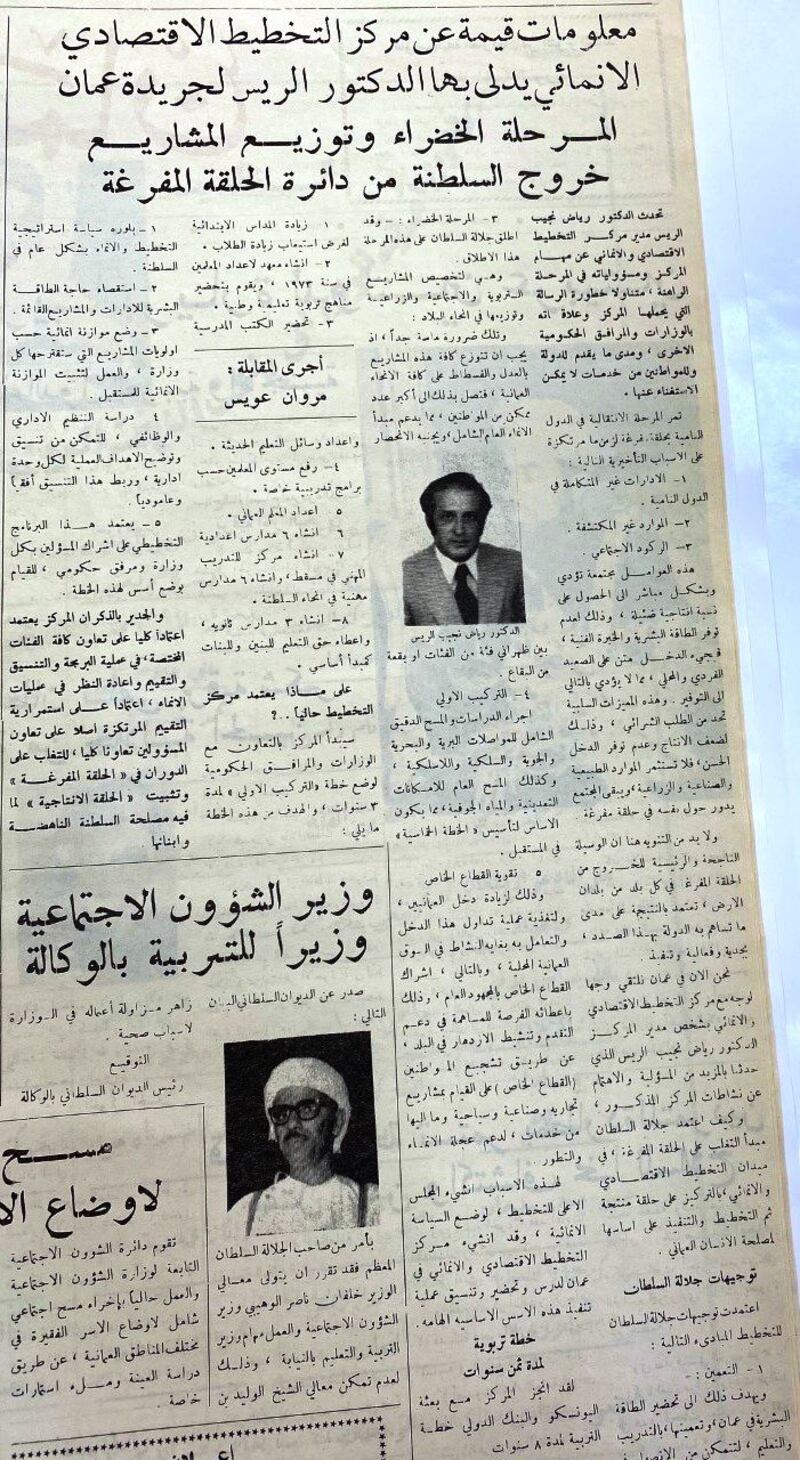 معلومات قيمة عن مركز التخطيط الاقتصادي
الانمائي يدلى بها الدكتور الريس لجريدة عمان
المرحلة الخضراء وتوزيع المشاريع
خروج السلطنة من دائرة الحلقة المفرغة
تحدث الدكتور رياض نجيب
الريس مدير مركز التخطيط
الاقتصادي والانمائي عن مهام
المركز ومسؤولياته في المرحلة
الراهنة ، متناولا خطورة الرسالة
التي يحملها المركز وعلاقاته
بالوزارات والمرافق الحكومية
الاخرى ، ومدى ما يقدم للدولة
وللمواطنين من خدمات لا يمكن
الاستغناء عنها .
تمر المرحلة الانتقالية في الدول
النامية بحلقة مفرغة لزمن ما مرتكزة
على الاسباب التأخيرية التالية :
١ - الادارات غير المتكاملة في
الدول النامية .
٢ - الموارد غير المكتشفة .
٣ - الركود الاجتماعي .
هذه العوامل مجتمعة تؤدي
وبشكل مباشر الى الحصول على
نسبة انتاجية ضئيلة ، وذلك لعدم
توفر الطاقة البشرية والخبرة الفنية ،
فيجيء الدخل متدن على الصعيد
الفردي والمحلي ، مما لا يؤدي بالتالي
الى التوفير . وهذه المميزات السلبية
تحد من الطلب الشرائي ، وذلك
لضعف الانتاج وعدم توفر الدخل
الحسن ، فلا تستثمر الموارد الطبيعية
والصناعية والزراعية ، ويبقى المجتمع
يدور حول نفسه في حلقة مفرغة .
ولا بد من التنويه هنا ان الوسيلة
الناجحة والرئيسية للخروج من
الحلقة المفرغة في كل بلد من بلدان
الارض ، تعتمد بالنتيجة على مدى
ما تساهم به الدولة بهذا الصدد ،
بجدية وفعالية وتنفيذ .
نحن الان في عمان نلتقي وجها
لوجه مع مركز التخطيط الاقتصادي
والانمائي بشخص مدير المركز
الدكتور رياض نجيب الريس الذي
حدثنا بالمزيد من المسؤلية والاهتمام
عن نشاطات المركز المذكور ،
وكيف اعتمد جلالة السلطان
مبدأ التغلب على الحلقة المفرغة ، في
ميدان التخطيط الاقتصادي
والانمائي ، بالتركيز على حلقة منتجة
ثم التخطيط والتنفيذ على اساسها
لمصلحة الانسان العماني .
توجيهات جلالة السلطان
اعتمدت توجيهات جلالة السلطان
للتخطيط المبادىء التالية :
١ - التعمين : -
ويهدف ذلك الى تحضير الطاقة
البشرية في عمان ، وتعمينها ، بالتدريب
والتعليم ، لتتمكن من
٣ - المرحلة الخضراء : - وقد
اطلق جلالة السلطان على هذه المرحلة
هذا الاطلاق .
وهي لتخصيص المشاريع
التربوية والاجتماعية والزراعية
وتوزيعها في انحاء البلاد :
وتلك ضرورة ماسة جداً ، اذ
يجب ان تتوزع كافة هذه المشاريع
بالعدل والقسطاط على كافة الانحاء
العمانية ، فتصل بذلك الى أكبر عدد
ممكن من المواطنين ، مما يدعم مبدأ
الانماء العام الشامل ، ويجنبه الانحصار
الدكتور رياض نجيب الريس
بين ظهراني فئة من الفئات او بقعة
من البقاع .
٤ - التركيب الاولي
اجراء الدراسات والمسح الدقيق
الشامل للمواصلات البرية والبحرية
والجوية والسلكية واللاسلكية ،
وكذلك المسح العام للامكانات
التعدينية والمياه الجوفية ، مما يكون
الاساس لتأسيس « الخطة الخماسية »
في المستقبل .
٥ تقوية القطاع الخاص
وذلك لزيادة دخل العمانيين ،
ولتغذية عملية تداول هذا الدخل
والتعامل به بغاية النشاط في السوق
العمانية المحلية ، وبالتالي ، اشراك
القطاع الخاص بالمجهود العام ، وذلك
باعطائه الفرصة للمساهمة في دعم
التقدم وتنشيط الازدهار في البلد ،
عن طريق تشجيع المواطنين
( القطاع الخاص ) على القيام بمشاريع
تجاريه وصناعية وسياحية وما اليها
من خدمات ، لدعم عجلة الانماء
والتطور .
لهذه الاسباب انشيء المجلس
الاعلى للتخطيط ، لوضع السياسة
الانمائية ، وقد انشيء مركز
التخطيط الاقتصادي والانمائي في
عمان لدرس وتحضير وتنسيق عملية
تنفيذ هذه الاسس الاساسيه الهامه .
خطة تربوية
لمدة ثمن سنوات
لقد انجز المركز مع بعثة
اليونسكو والبنك الدولي خطة
التربية لمدة ٨ سنوات
١ زيادة المداس الابتدائية
لغرض استيعاب زيادة الطلاب .
٢ - انشاء معهد لاعداد المعلمين
في سنة ١٩٧٣ ، ويقوم بتحضير
مناهج تربوية تعليمية وطنية .
٣ - تحضير الكتب المدرسية
أجرى المقابلة :
مروان عويس
واعداد وسائل التعليم الحديثة .
٤ - رفع مستوى المعلمين حسب
برامج تدريبية خاصة .
٥ اعداد المعلم العماني .
٦ انشاء ٦ مدارس اعدادية
٧ - انشاء مركز للتدريب
المهني في مسقط ، وانشاء ٦ مدارس
مهنية في انحاء السلطنة .
٨ - انشاء ٣ مدارس ثانويه ،
واعطاء حق التعليم للبنين وللبنات
كمبدأ أساسي .
على ماذا يعتمد مركز
التخطيط حالياً . . ؟
سيبدأ المركز بالتعاون مع
الوزارات والمرافق الحكومية
لوضع خطة « التركيب الاولي » لمدة
٣ سنوات ، والهدف من هذه الخطة
ما يلي :
١ - بلوره سياسة استراتيجية
التخطيط والانماء بشكل عام في
السلطنة .
٢ - استقصاء حاجة الطاقة
البشرية للادارات والمشاريع القائمة .
٣ - وضع موازنة انمائية حسب
اولويات المشاريع التي ستقترحها كل
وزارة ، والعمل لتثبيت الموازنة
الانمائية للمستقبل .
٤ دراسة التنظيم الاداري
والوظائفي ، للتمكن من تنسيق
وتوضيح الاهداف العملية لكل وحدة
ادارية ، وربط هذا التنسيق أفقيا
وعاموديا .
٥ - يعتمد هذا البرنامج
التخطيطي على اشراك المسؤلين بكل
وزارة ومرفق حكومي ، للقيام
بوضع أسس لهذه الخطة .
والجدير بالذكر ان المركز يعتمد
اعتماداً كليا على تعاون كافة الفئات
المختصة ، في عملية البرمجة والتنسيق
والتقييم واعادة النظر في عمليات
الانماء ، اعتماداً على استمرارية
التقييم المرتكزة اصلا على تعاون
المسؤولين تعاونا كليا ، للتغلب على
الدوران في « الحلقة المفرغة »
وتثبيت « الحلقة الانتاجية » لما
فيه مصلحة السلطنة الناهضة
وابنائها .
وزير الشؤون الاجتماعية
وزيراً للتربية بالوكالة
صدر عن الديوان السلطاني البيان
التالي :
بأمر من صاحب الجلالة السلطان
المعظم فقد تقرر ان يتولى معالي
الوزير خلفان ناصر الوهيبي وزير
الشؤون الاجتماعية والعمل مهام وزير
التربية والتعليم بالنيابة ، وذلك
لعدم تمكن معالي الشيخ الوليد بن
زاهر مزاولة أعماله في الوزارة
لاسباب صحية .
التوقيع
رئيس الديوان السلطاني بالوكالة
مسح
لاوضاع الا
تقوم دائرة الشؤون الاجتماعية
التابعة لوزارة الشؤون الاجتماعية
والعمل حالياً بإجراء مسح اجتماعي
شامل لاوضاع الاسر الفقيرة في
مختلف المناطق العمانية ، عن طريق
دراسة العينة وملء استمارات
خاصة .